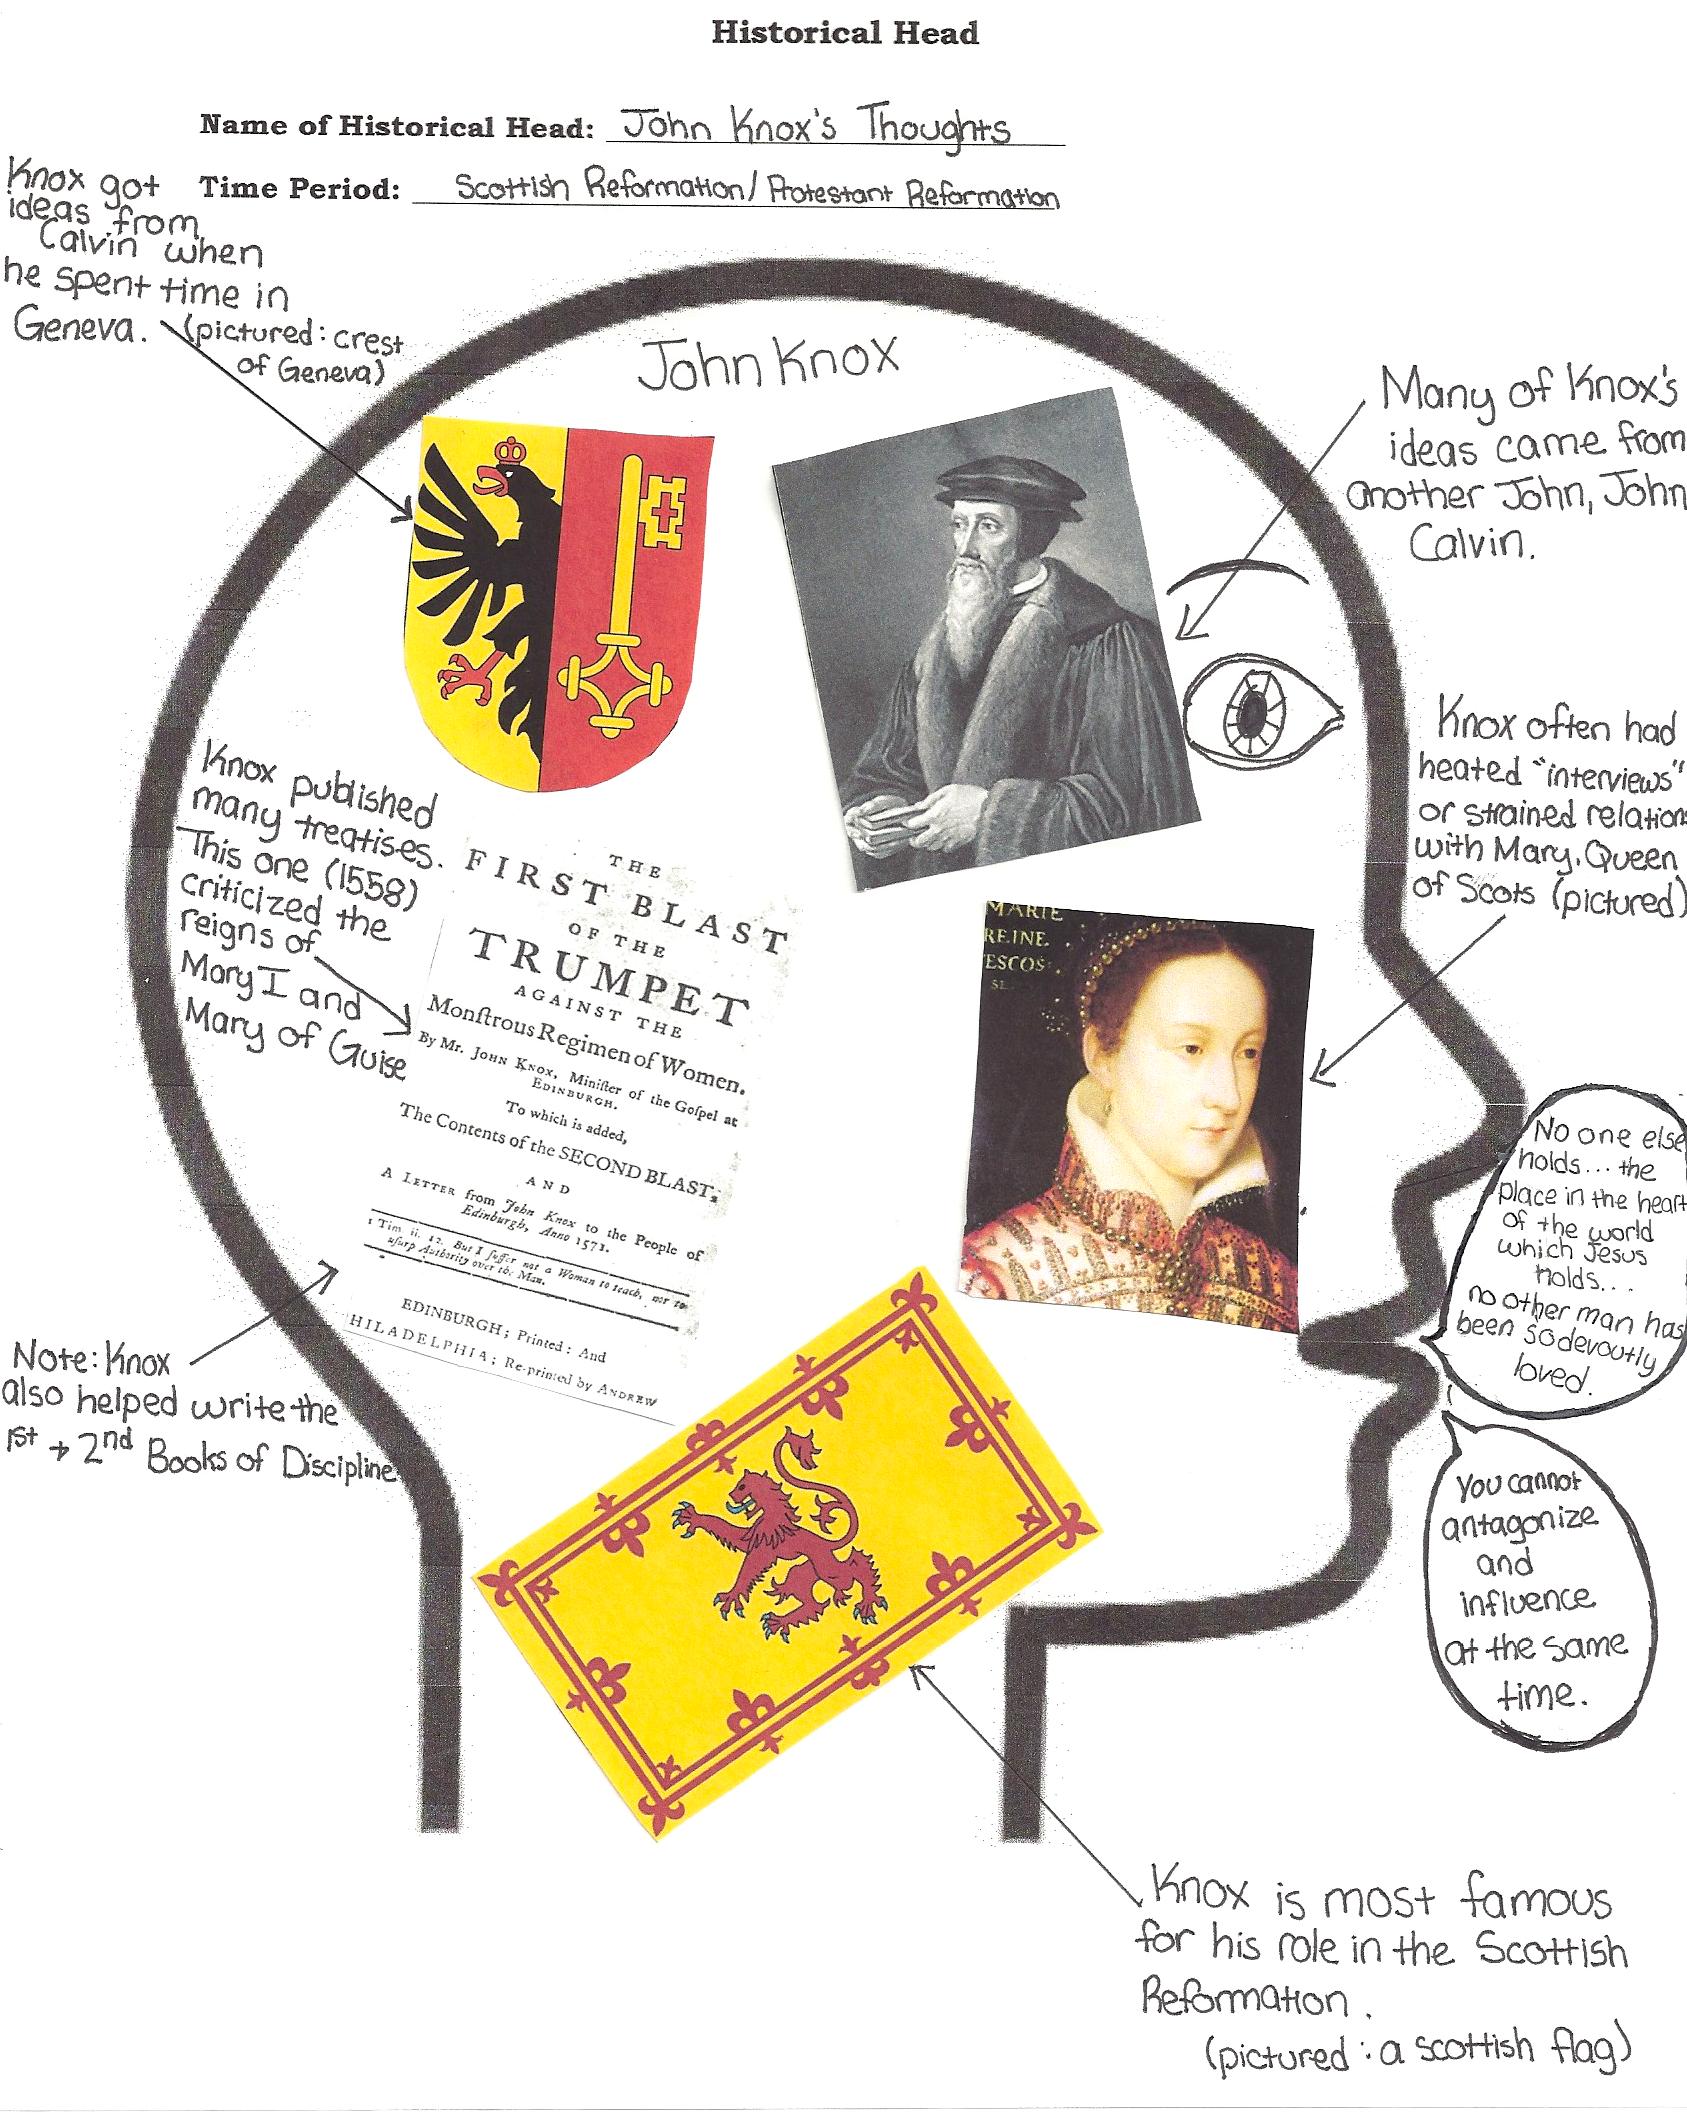 Historical Head
Name of Historical Head: John Knox's Thoughts
Time Period: Scottish Reformation/Protestant Reformation
Knox got
ideas from
Calvin when
he spent time in
Geneva.
(pictured: crest
of Geneva)
John Knox
Many of Knox's
ideas came from
another John, John
Calvin.
Knox often had
heated "interviews"
or strained relation
with Mary, Queen
of Scots (pictured)
MARIE
REINE
ESCOS
Knox published
many treatises.
This one (1558)
criticized the
reigns of
Mary I and
Mary of Guise
THE
FIRST BLAST
OF THE
TRUMPET
AGAINST THE
Monſtrous Regimen of Women.
By Mr. JOHN KNOX, Miniſter of the Goſpel at
EDINBURGH.
To which is added,
The Contents of the SECOND BLAST,
AND
A LETTER from John Knox to the People of
Edinburgh, Anno 1571.
1 Tim. ii. 12. But I ſuffer not a Woman to teach, nor to
uſurp Authority over the Man.
EDINBURGH; Printed: And
HILADELPHIA; Re-printed by ANDREW
Note: Knox
also helped write the
1st + 2nd Books of Discipline
No one else
holds... the
place in the heart
of the world
which Jesus
holds...
no other man has
been so devoutly
loved.
You cannot
antagonize
and
influence
at the same
time.
Knox is most famous
for his role in the Scottish
Reformation.
(pictured: a scottish flag)